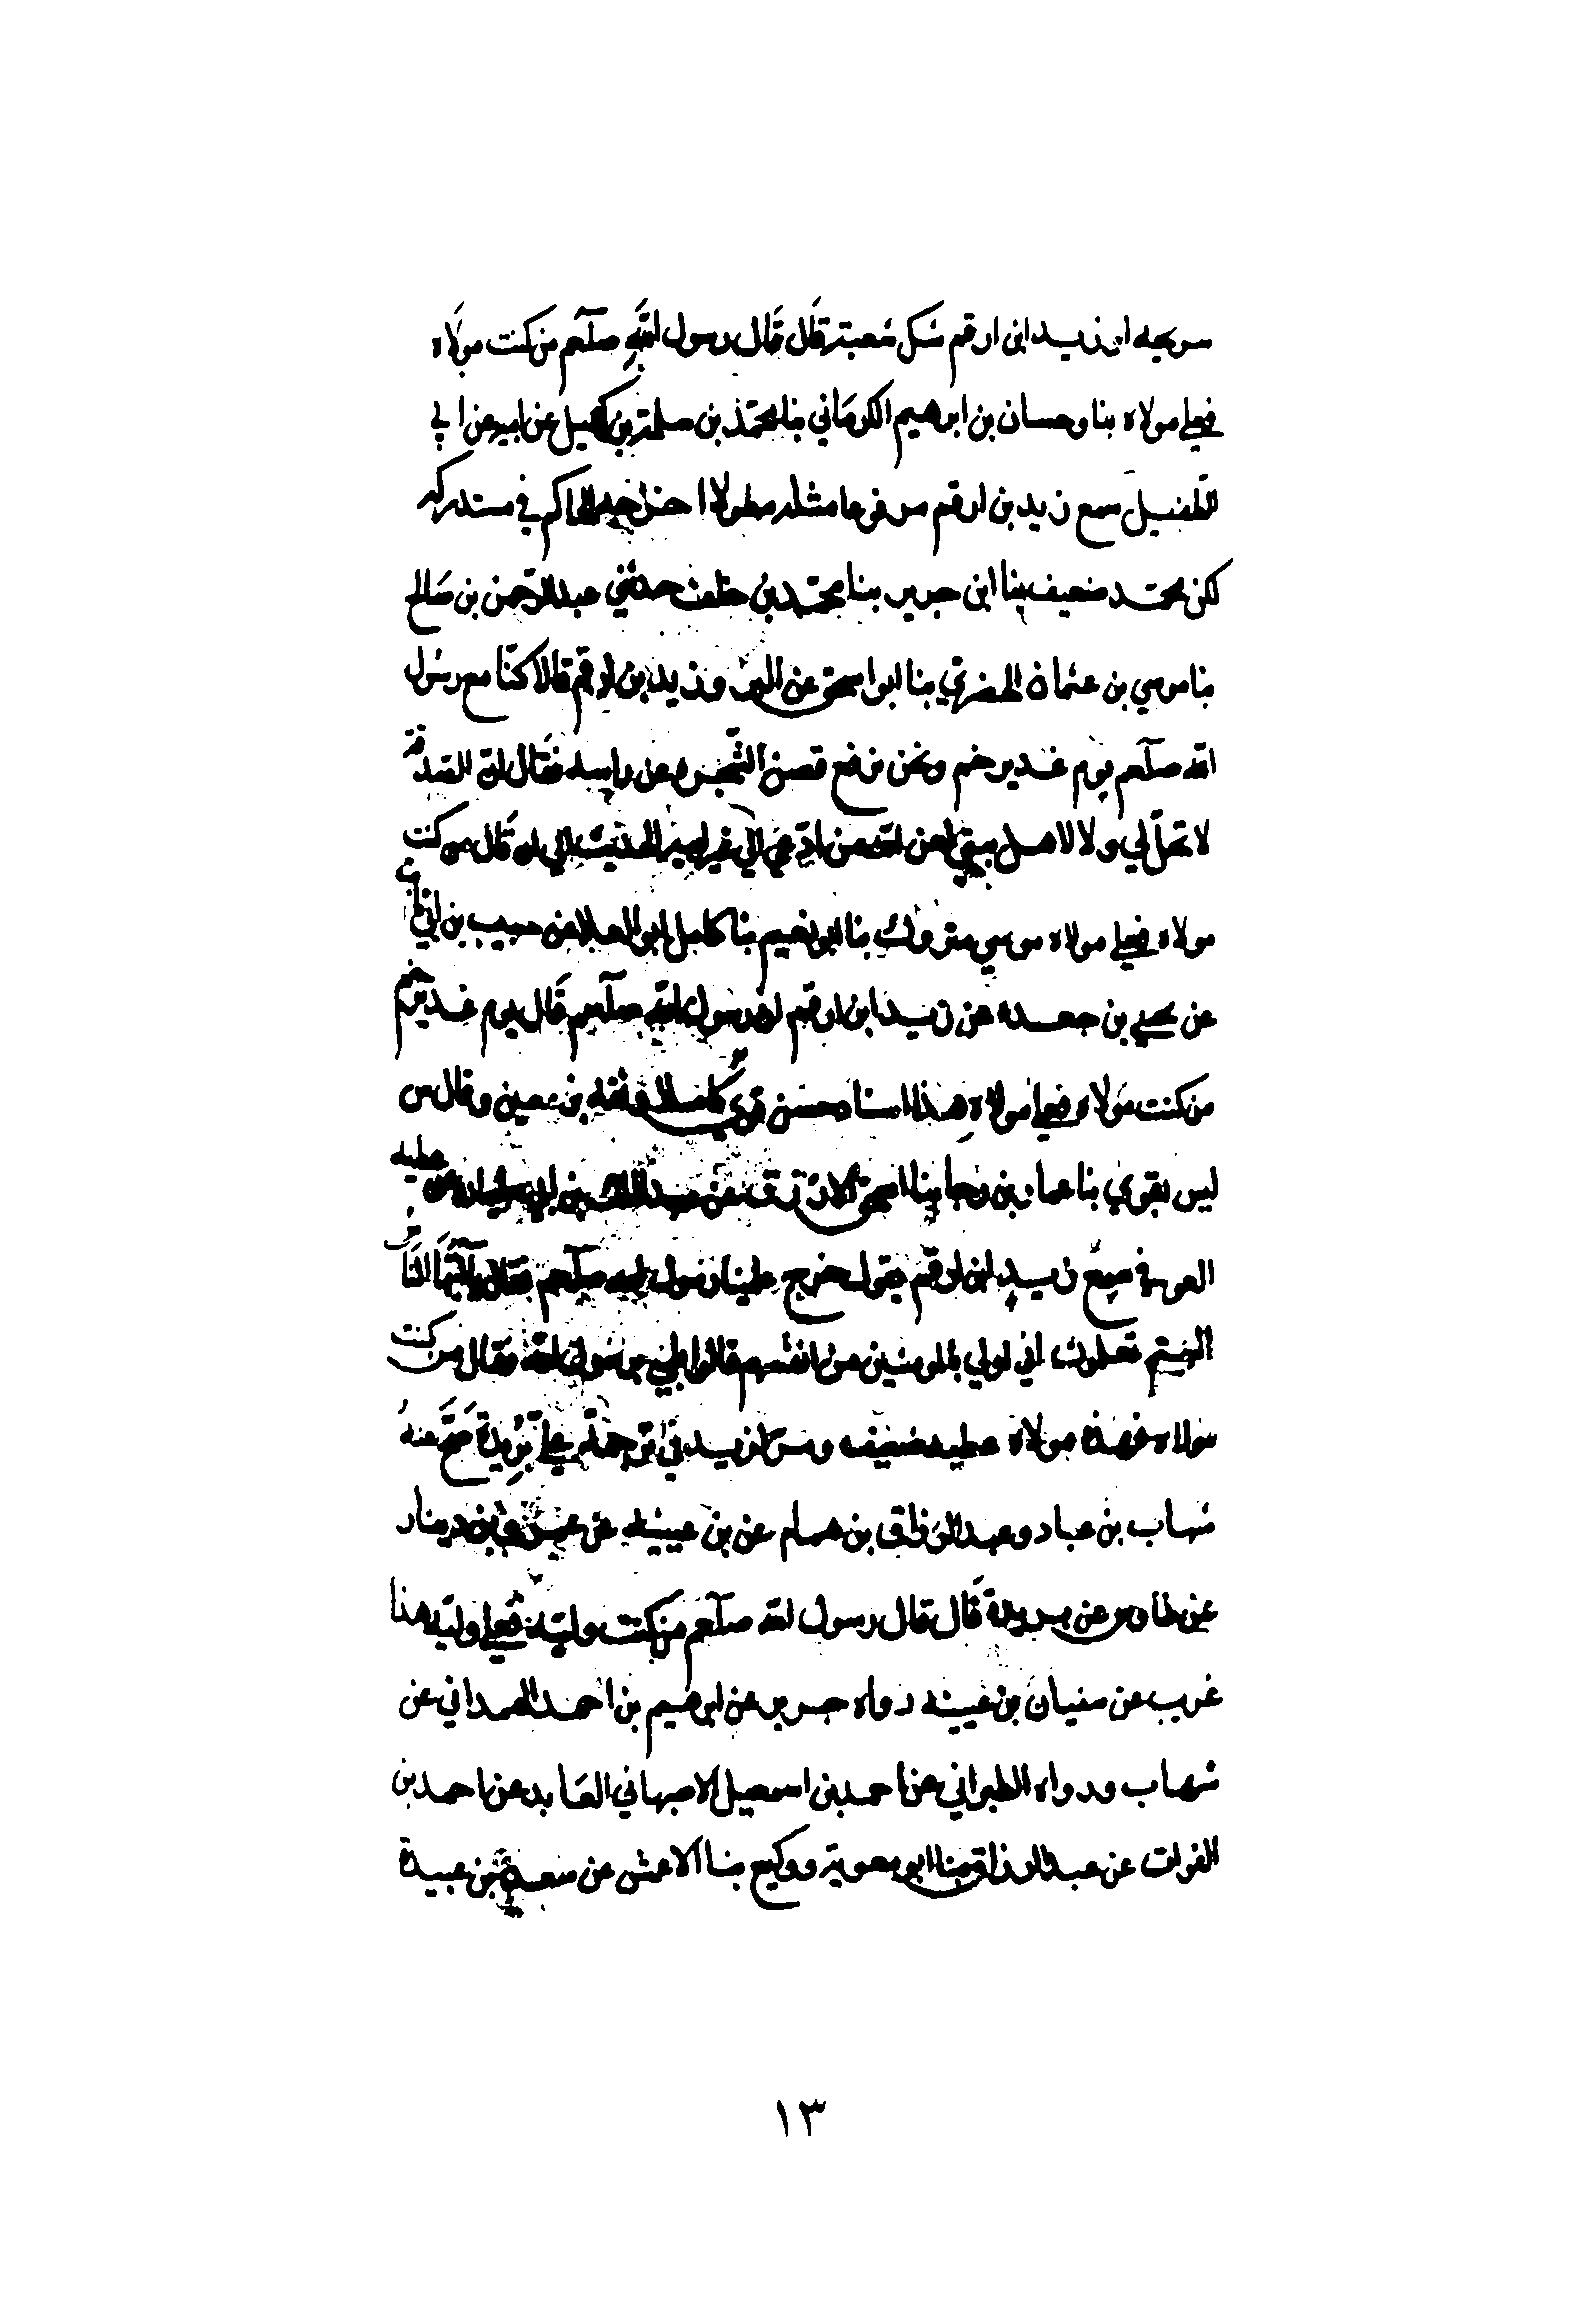 سريحه او زيد ابن ارقم شك شعبة قال قال رسول الله صلعم من كنت مولاه
فعلي مولاه بنا وحسان بن ابرهيم الكرماني بنا محمد بن سلمة بن كهيل عن ابيه عن ابي
الطفيل سمع زيد بن ارقم مرفوعا مثله مطولا اخرجه الحاكم في مستدركه
لكن محمد ضعيف بنا ابن جرير بنا محمد بن خلف حدثني عبد الرحمن بن صالح
بنا موسي بن عثمان الحضرمي بنا ابو اسحق عن البر وزيد بن ارقم قالا كنا مع رسول
الله صلعم يوم غدير خم ونحن نرفع غصن الشجره عن راسه فقال ان الصدقة
لا تحل لي ولا لاهل بيتي لعن الله من ادعي الي غير ابيه الحديث الي ان قال من كنت
مولاه فعلي مولاه موسي متروك بنا ابو نعيم بنا كامل ابو العلا عن حبيب بن ابي ثابت
عن يحيي بن جعده عن زيد ابن ارقم ان رسول الله صلعم قال يوم غدير خم
من كنت مولاه فعلي مولاه هذا اسناد حسن قوي كامل وثقه بن معين وقال س
ليس بقوي بنا عمار بن رجا بنا اسحق الازرق عن عبد الملك بن ابي سليمان عن عطيه
العوفي سمع زيد ابن ارقم يقول خرج علينا رسول الله صلعم فقال يا ايها الناس
الستم تعلمون اني اولي بالمومنين من انفسهم قالوا بلي يرسول الله فقال من كنت
مولاه فهذا مولاه عطيه ضعيف ومر لزيد في ترجمة علي بريدة صح عنه
شهاب بن عباد وعبد الرزاق بن همام عن بن عيينه عن عمرو بن دينار
عن طاوس عن بريدة قال قال رسول الله صلعم من كنت وليه فعلي وليه هذا
غريب عن سفيان بن عيينه رواه جرير عن ابرهيم بن احمد الهمداني عن
شهاب ورواه الطبراني عن احمد بن اسمعيل الاصبهاني العابد عن احمد بن
الفرات عن عبد الرزاق بنا ابو معوية ووكيع بنا الاعمش عن سعد بن عبيدة
١٣